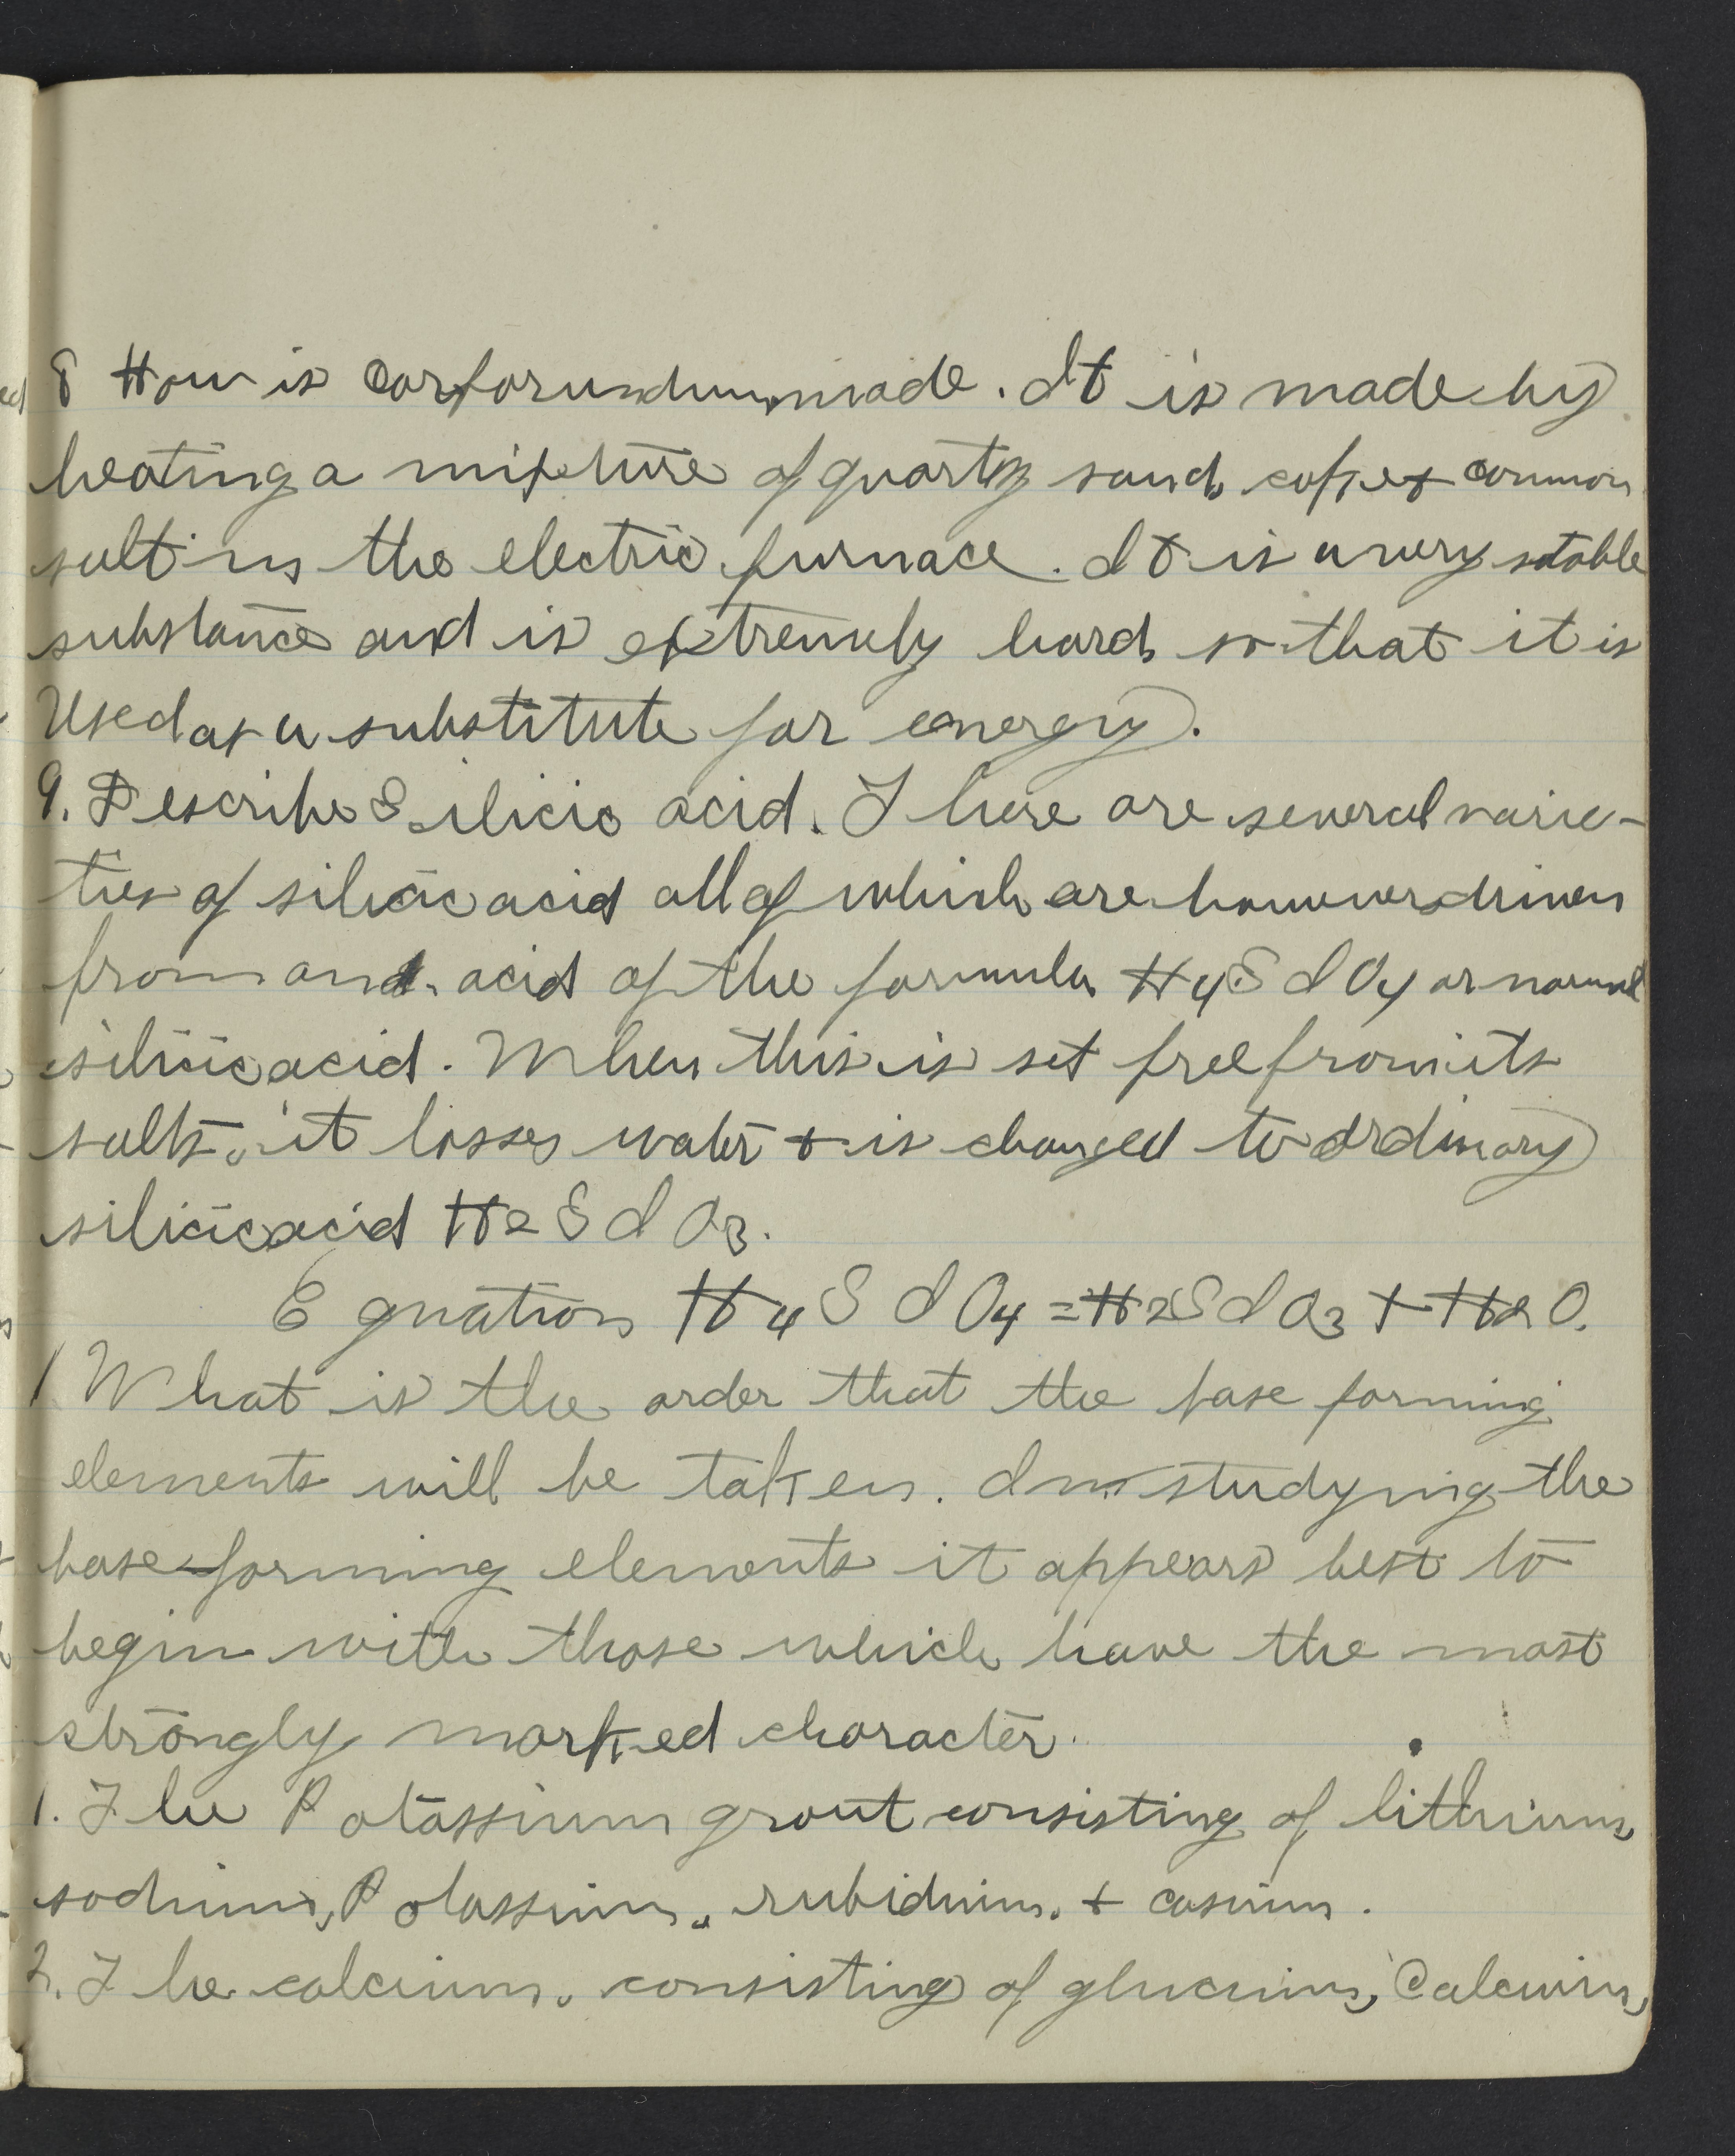 8 How is Corforundum made. It is made by
heating a mixture of quartz sand coke & common
salt in the electric furnace. It is a very stable
substance and is extremely hard so that it is
Used as a substitute for energy.
9. Describe Silicic acid. There are several varie-
ties of silicic acid all of which are however driven
from and acid of the formula H4SIO4 or normal
silicic acid. When this is set free from its
salts, it losses water & is changed to ordinary
silicic acid H2SIO3.
Equation H4SIO4 = H2SIO3 + H2O.
1 What is the order that the base forming
elements will be taken. In studying the
base-forming elements it appears best to
begin with those which have the most
strongly marked character.
1. The Potassium grout consisting of lithium,
sodium, Potassium, rubidium, + casium.
2. The calcium, consisting of glucinium, Calcium,